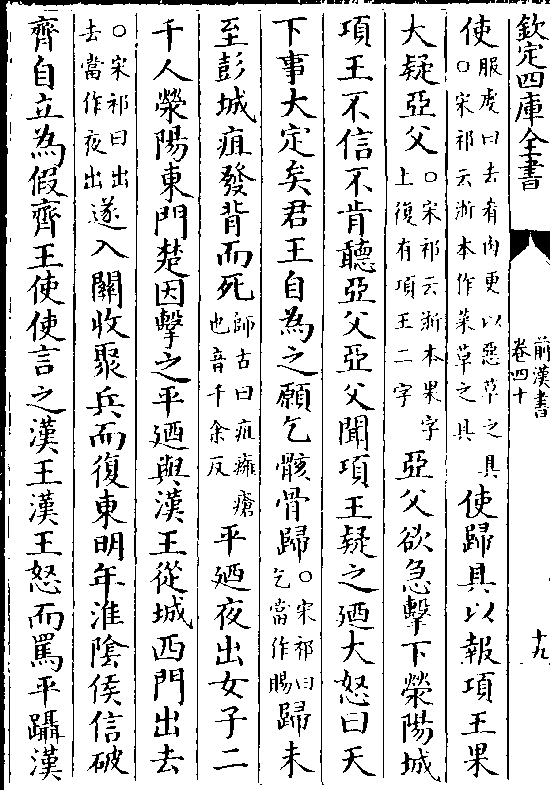 欽定四庫全書
前漢書
卷四十
十九
使服虔曰去肴肉更以惡草之具○宋祁云浙本作菜草之具使歸具以報項王果
大疑亞父○宋祁云浙本果字上復有項王二字亞父欲急擊下滎陽城
項王不信不肯聽亞父亞父聞項王疑之廼大怒曰天
下事大定矣君王自為之願乞骸骨歸○宋祁曰乞當作賜歸未
至彭城疽發背而死師古曰疽癰瘡也音千余反平廼夜出女子二
千人滎陽東門楚因擊之平廼與漢王從城西門出去
○宋祁曰出去當作夜出遂入關收聚兵而復東明年淮陰侯信破
齊自立為假齊王使使言之漢王漢王怒而罵平躡漢